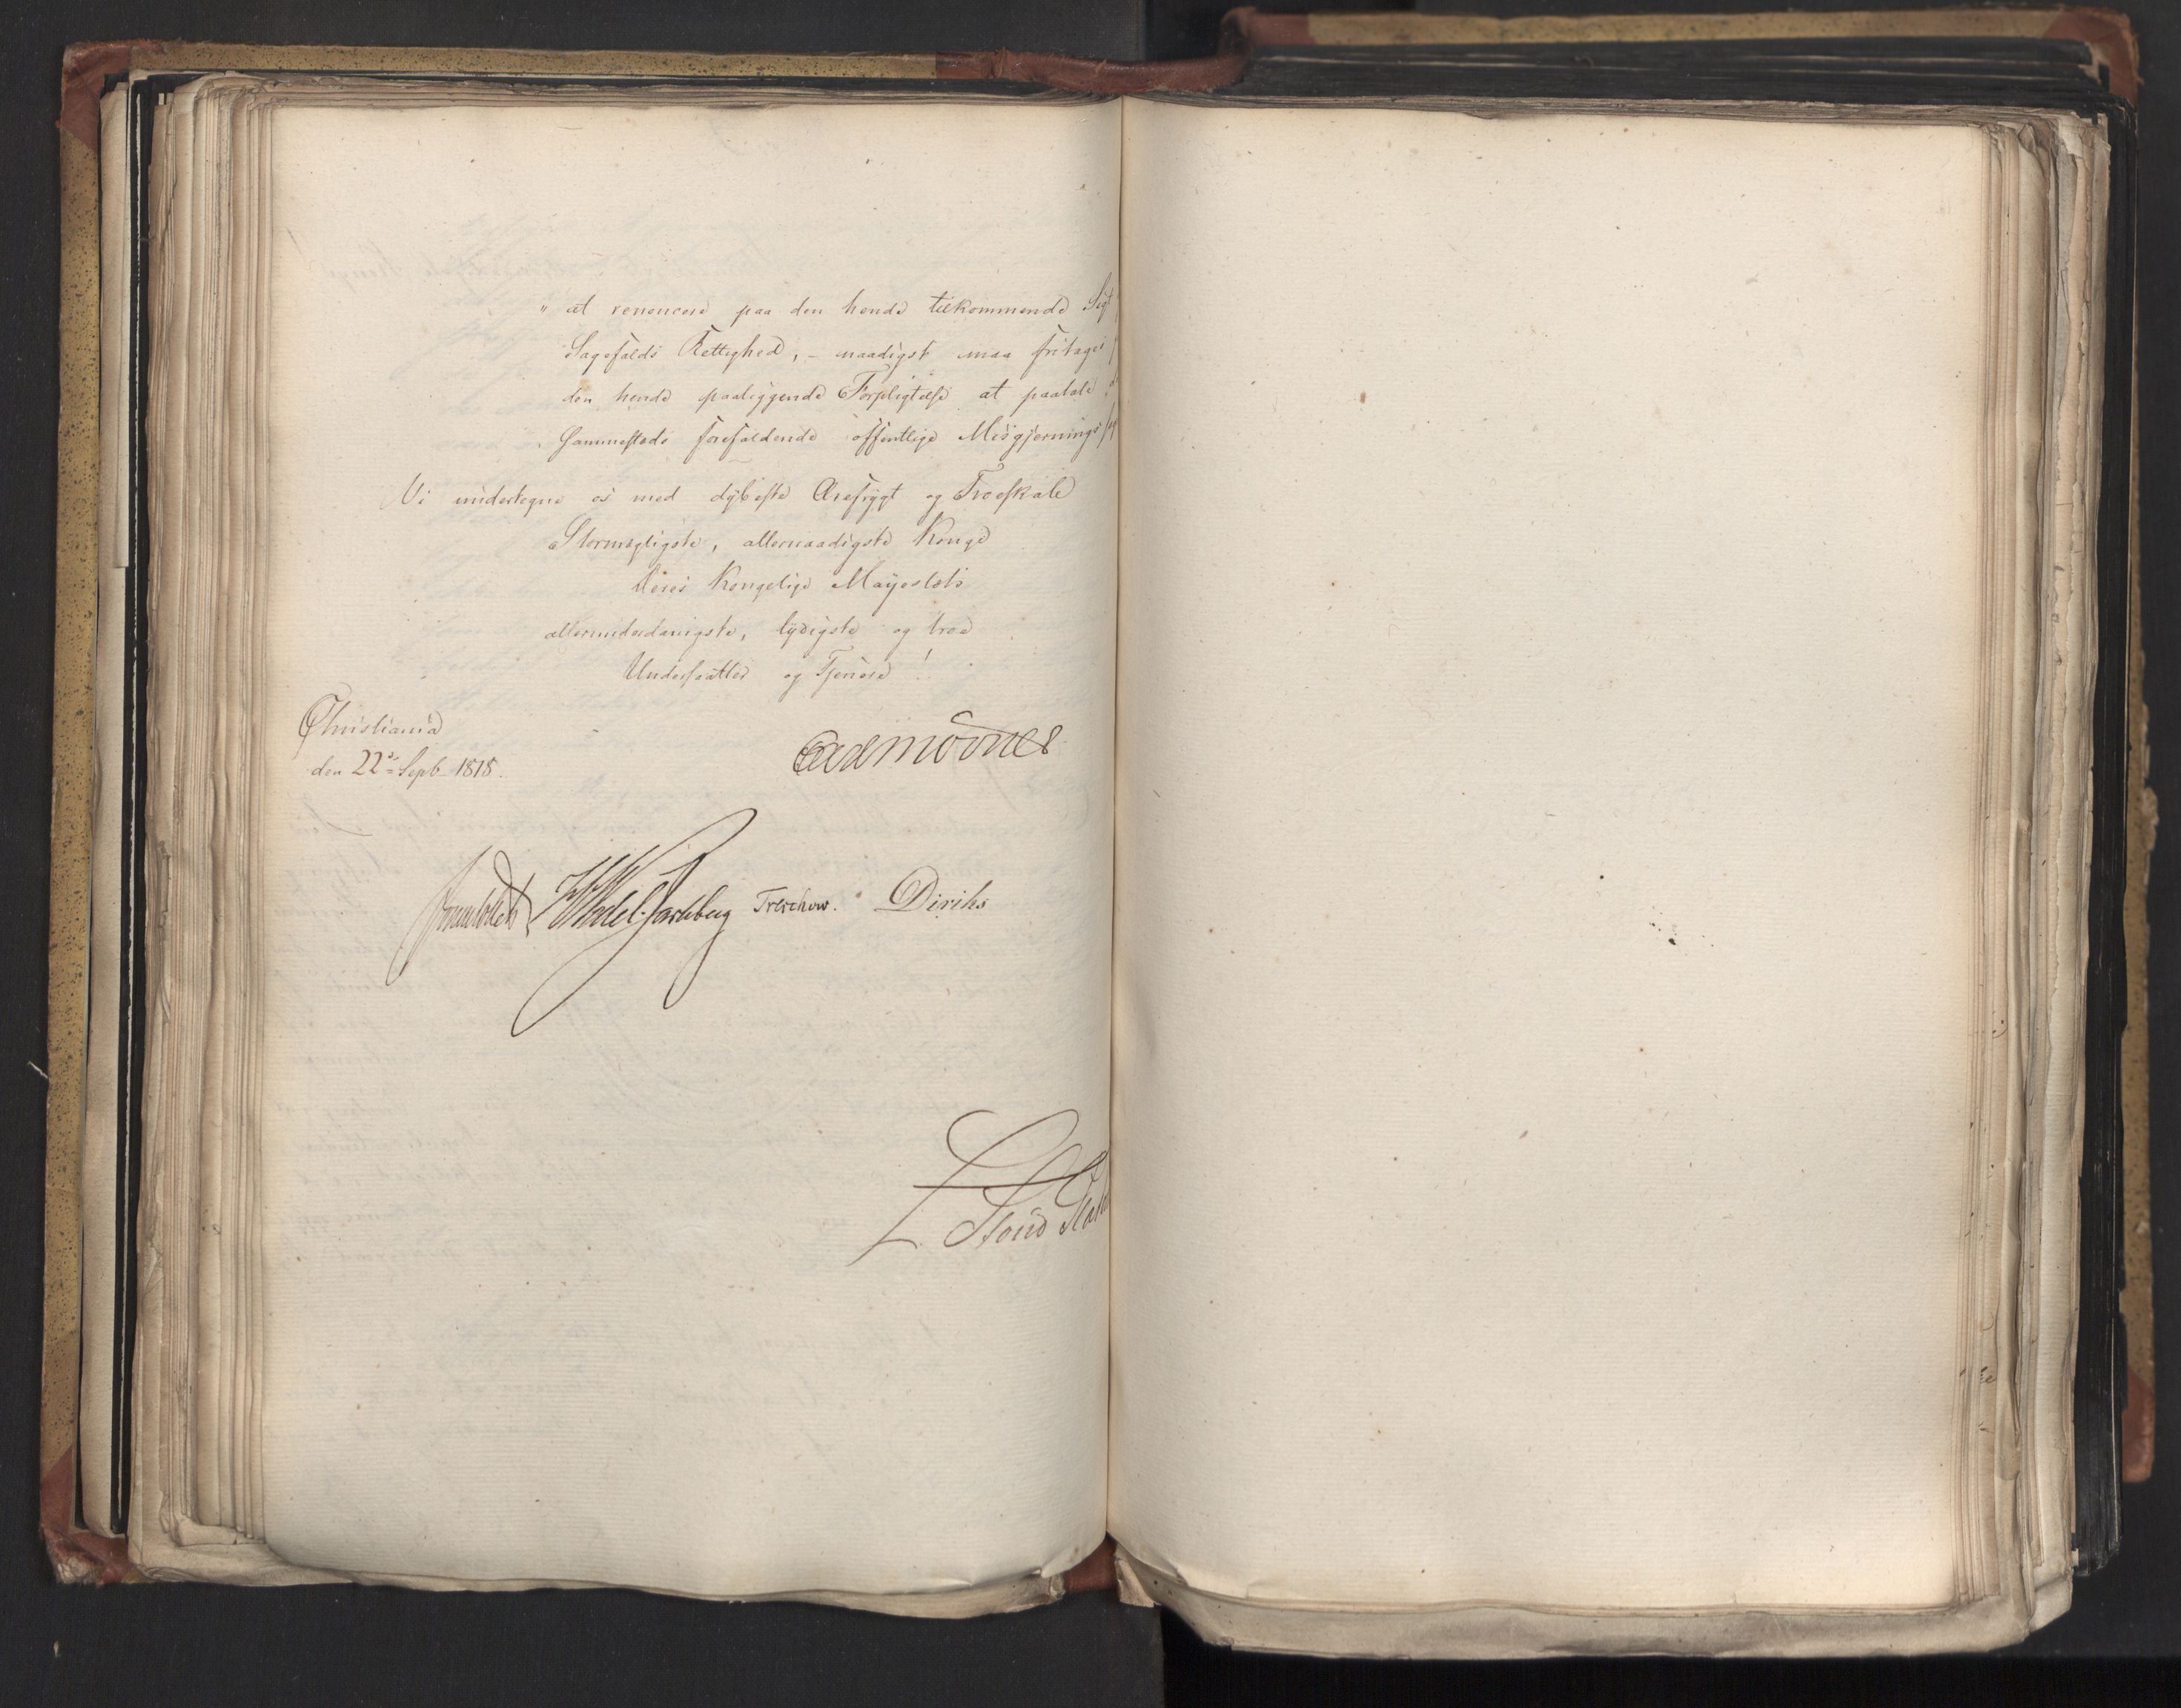 " at renoncere paa den hende tilkommende Sigt
Sagefalds Rettighed, – naadigst maa fritages
den hende paaliggende Forpligtelse at paatale
sammesteds forefaldende offentlige Misgjernings
Vi undertegne os med dybeste Ærefrygt og Troeskab
Stormægtigste, allernaadigste Konge
Deres Kongelige Mayestæts
allerunderdanigste, lydigste og troe
Undersaatter og Tjenere!
Christiania
den 22de Septb 1818.
CadMörner
Sommerhielm HWedel-Jarlsberg Treschow. Diriks